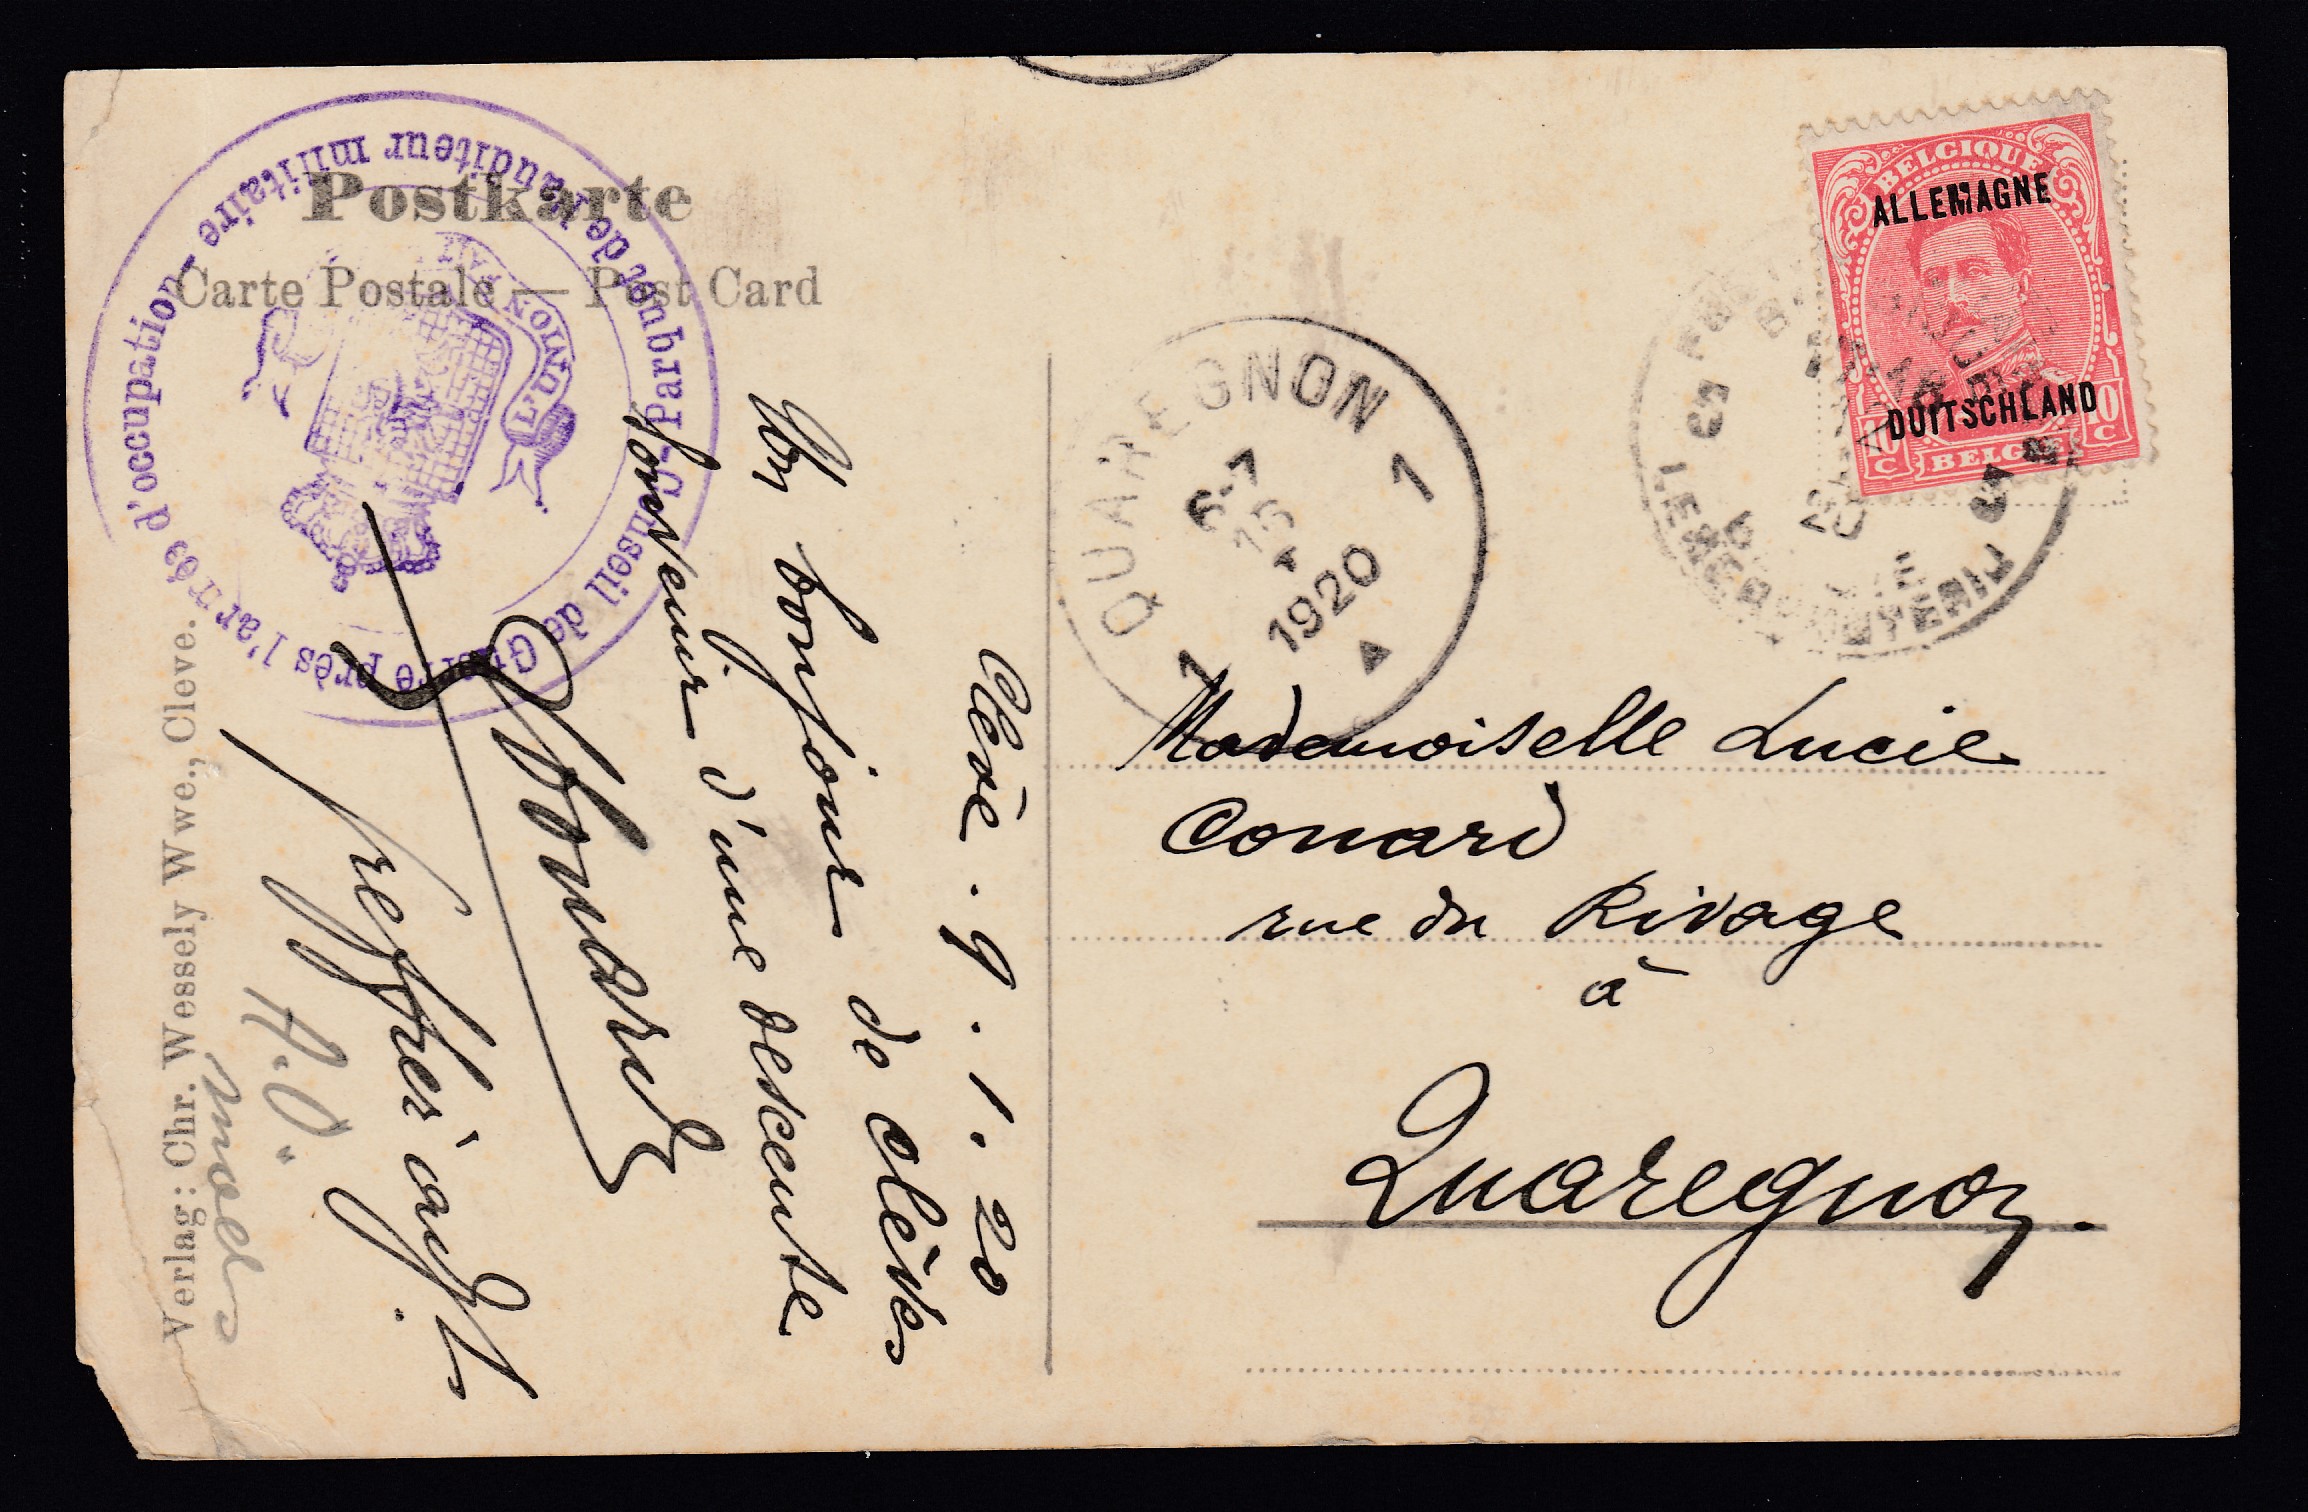 Postkarte
Carte Postale — Post Card
Conseil de Guerre près l'armée d'occupation - auditeur militaire
S-Parquet de l'auditeur militaire
L'UNION FAIT
Verlag: Chr. Wessely Wwe., Cleve.
Clève . 9 . 1. 20
Un bonjour de Clèves
Souvenir d'une descente
Conard
greffier adjt.
A.O.
QUAREGNON
1 1
6-7
15
1
1920
BELGIQUE
ALLEMAGNE
DUITSCHLAND
10 C BELGIE 10 C
LEGERPOSTERIJ
Mademoiselle Lucie
Conard
rue du Rivage
à
Quaregnon.